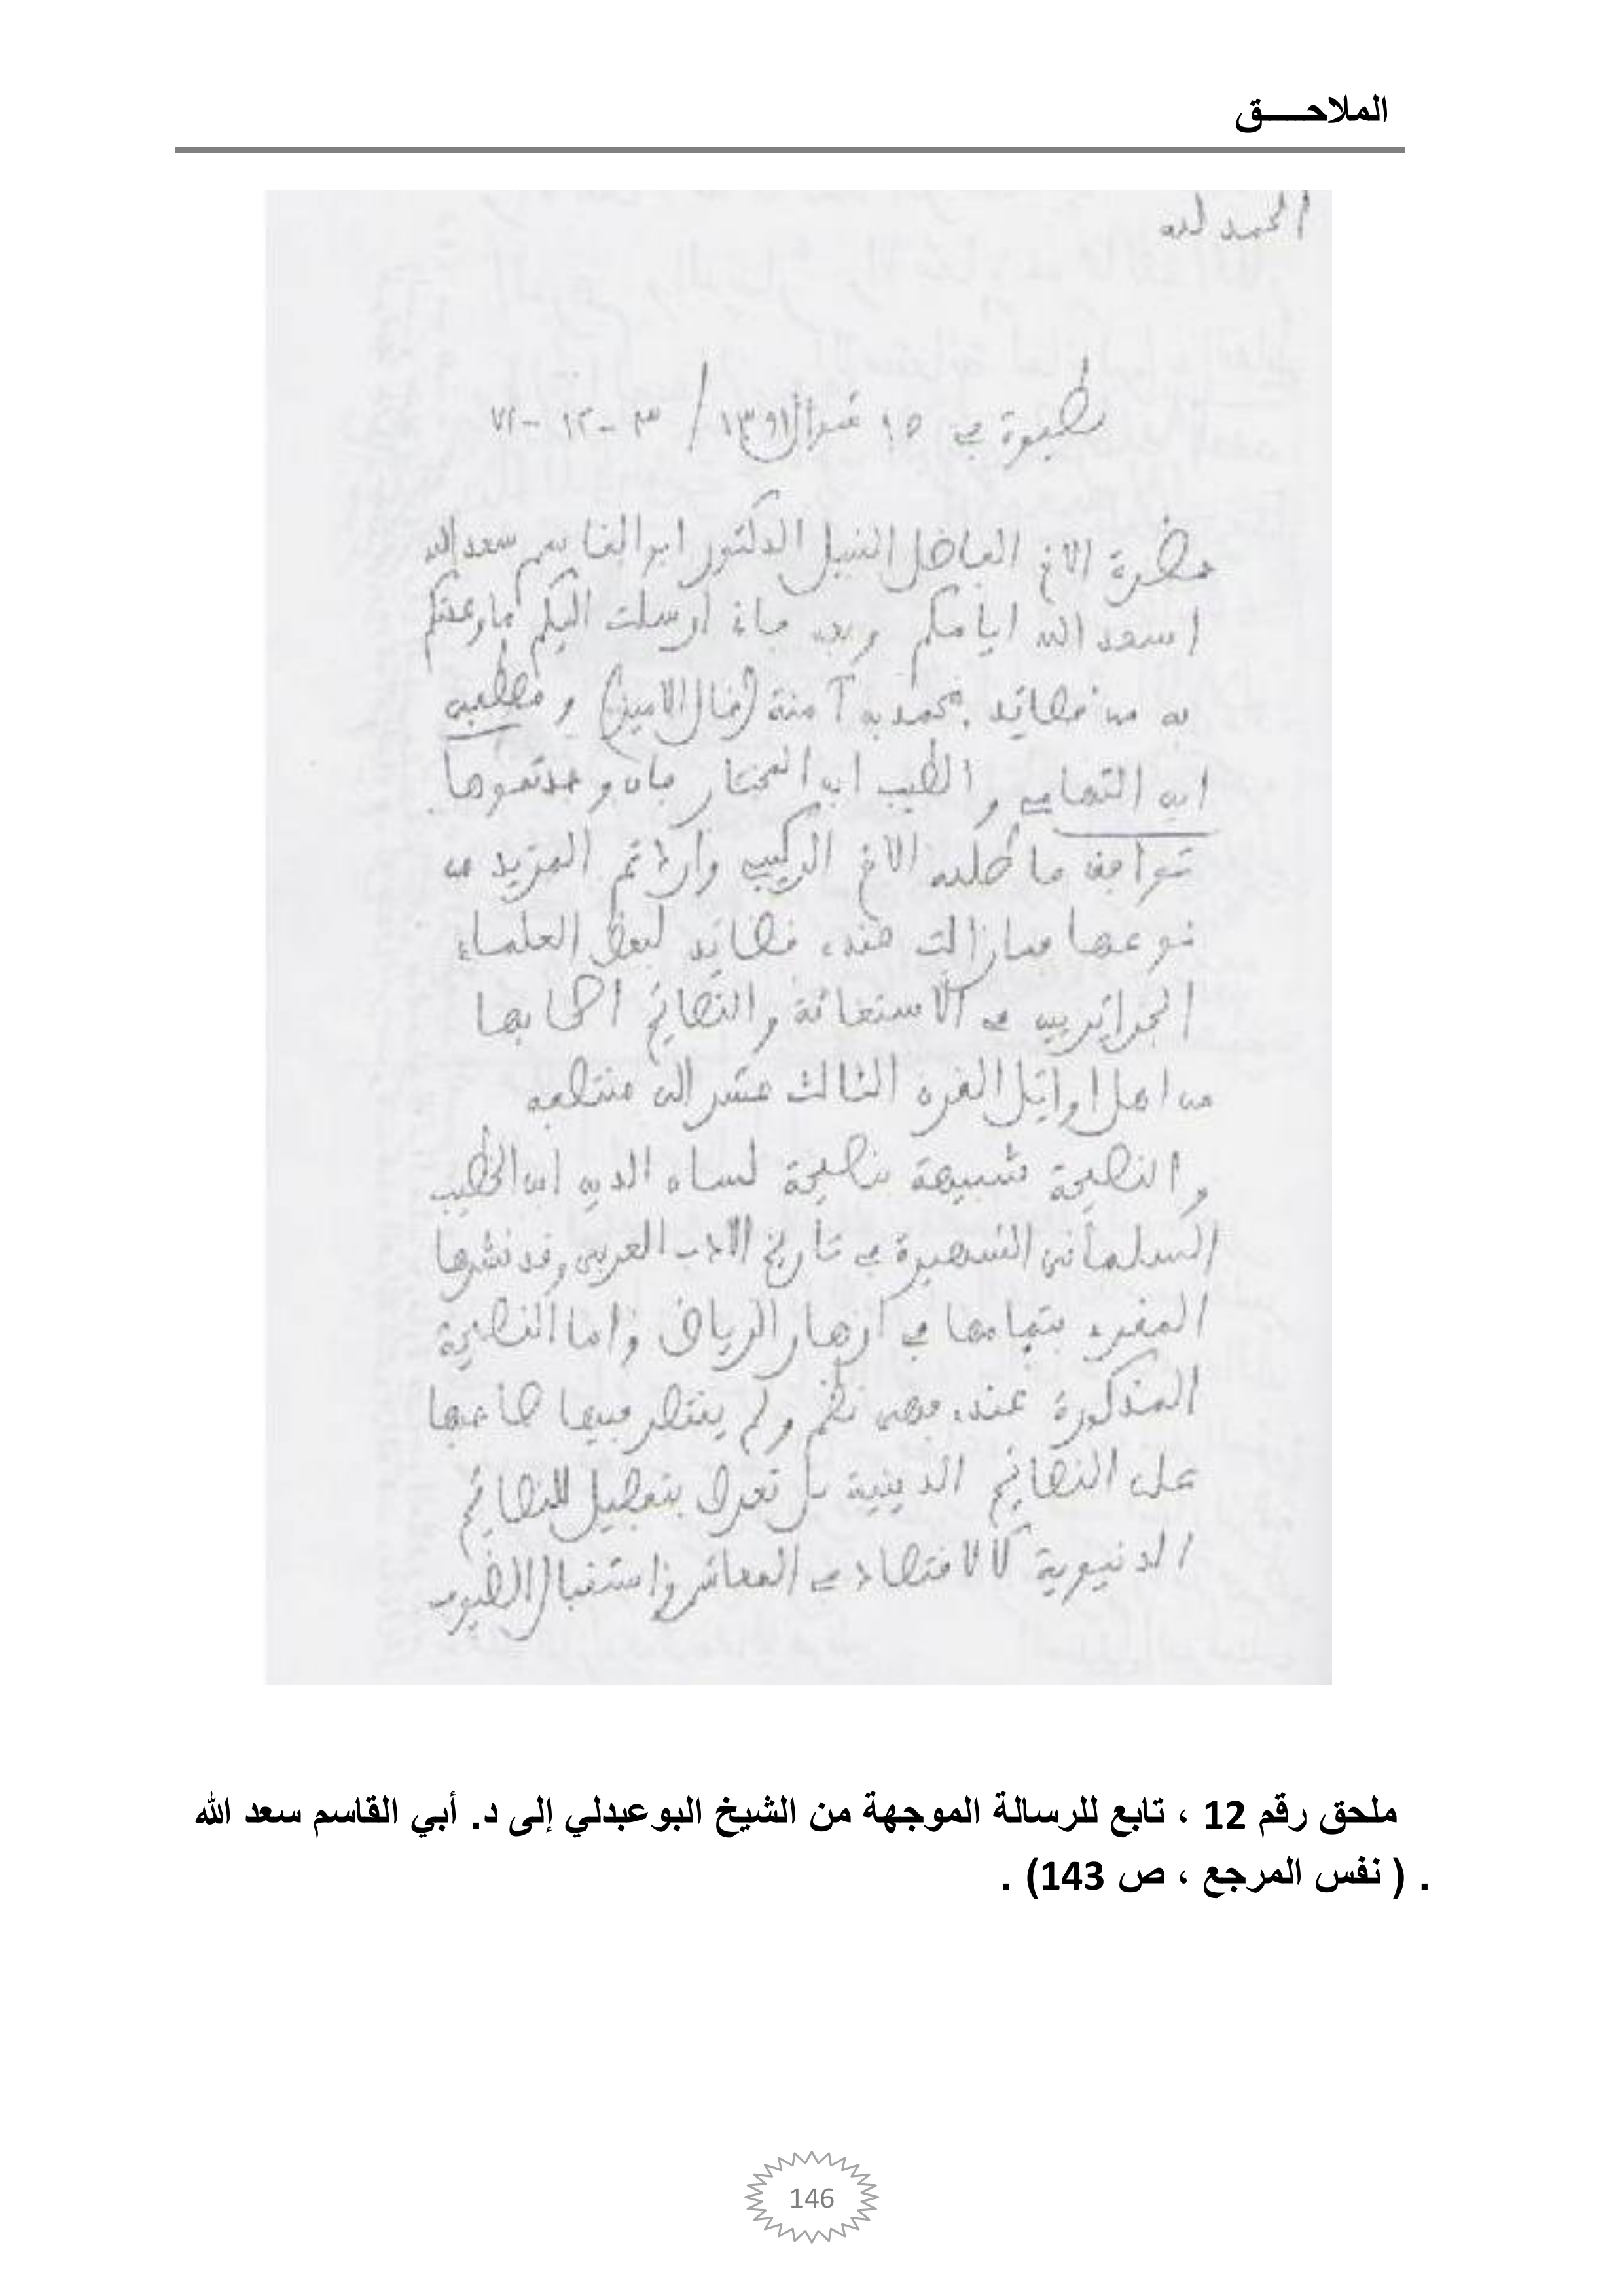 الملاحـــــق
الحمد لله
بطيوة في ١٥ شوال ١٣٩١ / ٣-١٢-٧١
حضرة الاخ الفاضل النبيل الدكتور ابو القاسم سعد الله
اسعد الله ايامكم وبعد فاني ارسلت اليكم ما وعدتكم
به من قصائد محمد بن آمنة (خال الامين) و
ابن التهامي والطيب ابن المختار فان وجدتموها
توافق ما طلبه الاخ الركيبي واردتم المزيد من
نوعها فمازالت عندي قصائد لبعض العلماء
الجزائريين في الاستغاثة والنصائح اصحابها
من اهل اوائل القرن الثالث عشر الى منتصفه
والنصيحة شبيهة بنصيحة لسان الدين ابن الخطيب
السلماني الشهيرة في تاريخ الادب العربي وقد نشرها
المقري بتمامها في ازهار الرياض واما النصيحة
المذكورة عندي فهي نظم ولم يقتصر فيها صاحبها
على النصائح الدينية بل تعرض بتفصيل للنصائح
الدنيوية كالاقتصاد في المعاش واستقبال الضيوف
ملحق رقم 12 ، تابع للرسالة الموجهة من الشيخ البوعبدلي إلى د. أبي القاسم سعد الله
. ( نفس المرجع ، ص 143) .
146